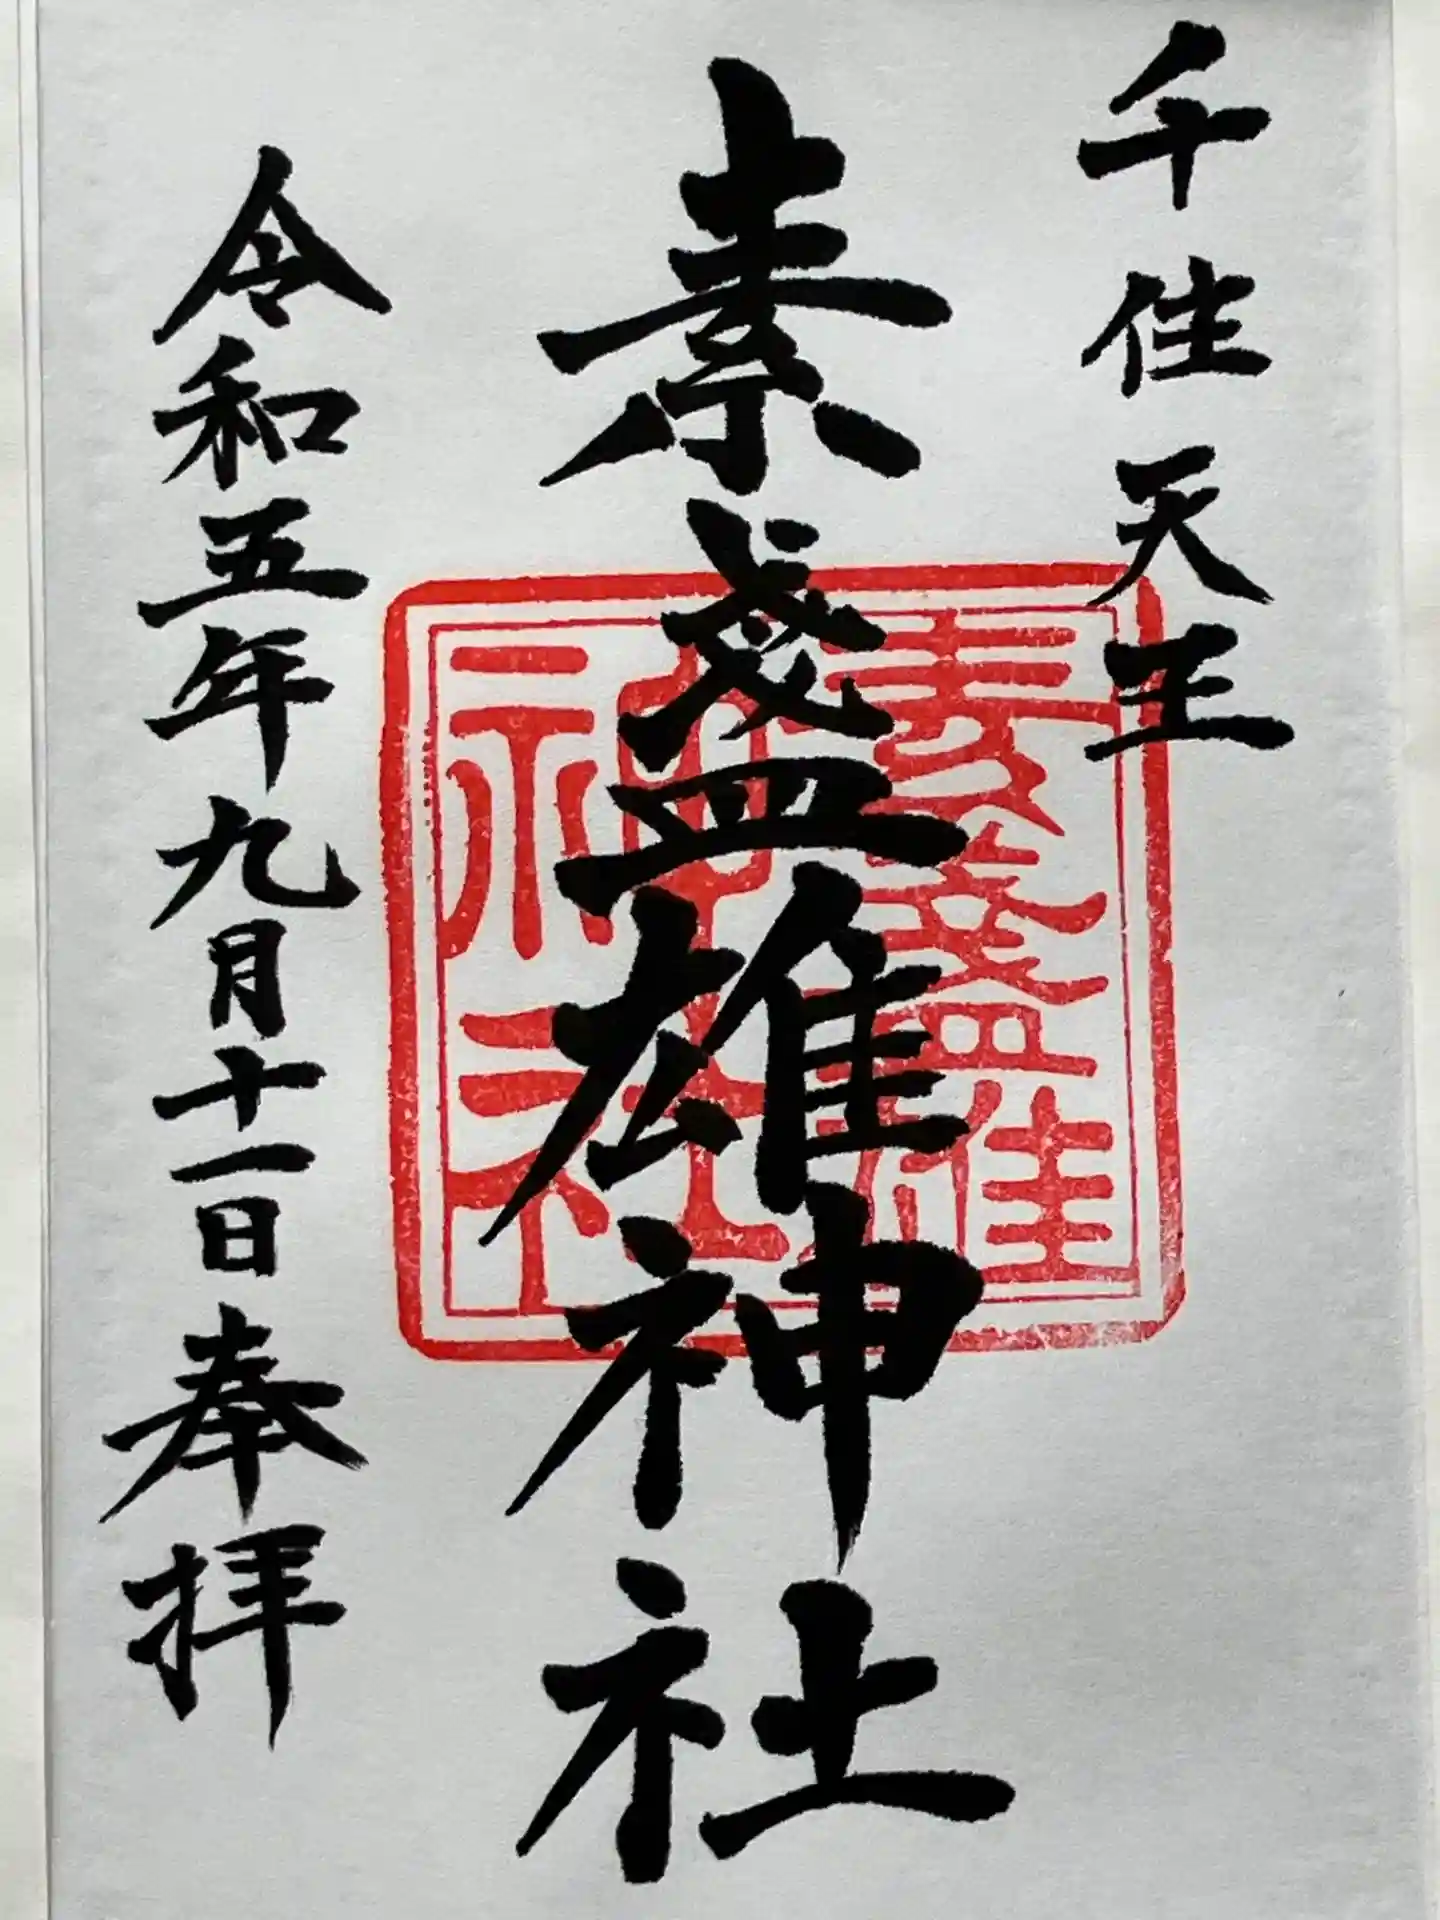 千住天王
素盞雄神社
素盞雄
神社
令和五年九月十一日奉拝